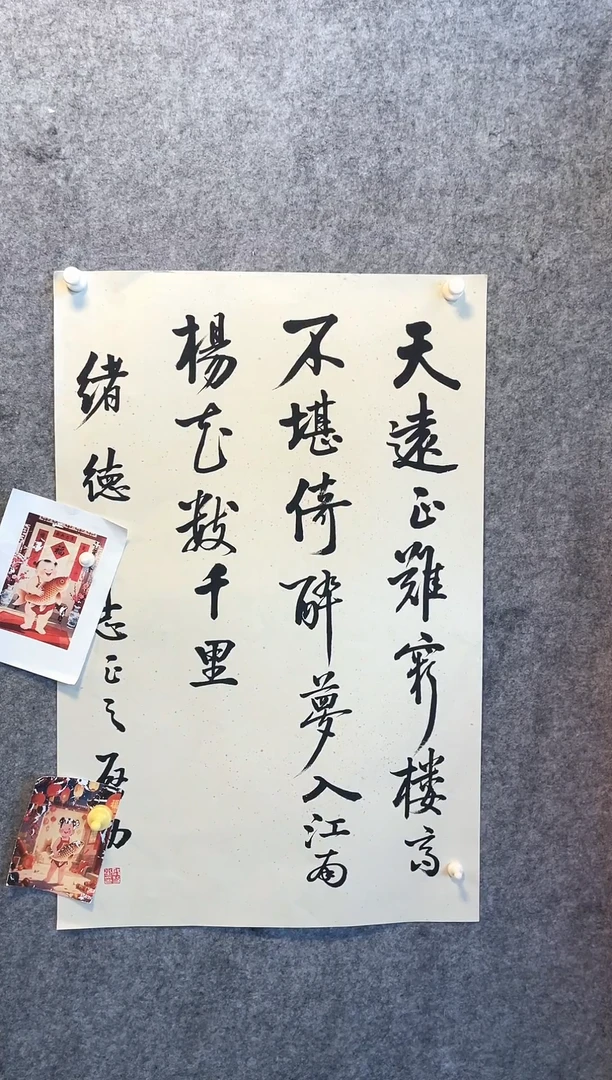 天遠正難窮樓高
不堪倚醉夢入江南
楊花數千里
緒德
志正之啟